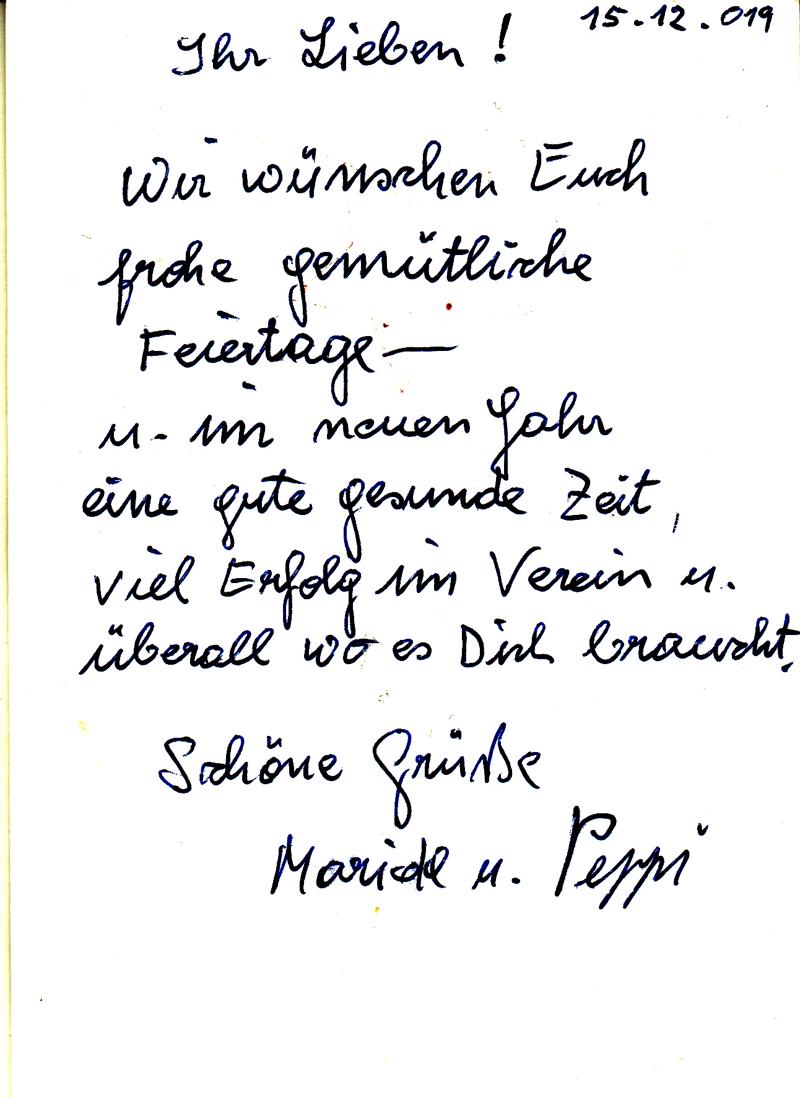 15.12.019
Ihr Lieben !
Wir wünschen Euch
frohe gemütliche
Feiertage —
u. im neuen Jahr
eine gute gesunde Zeit,
viel Erfolg im Verein u.
überall wo es Dich braucht.
Schöne Grüße
Maridl u. Peppi